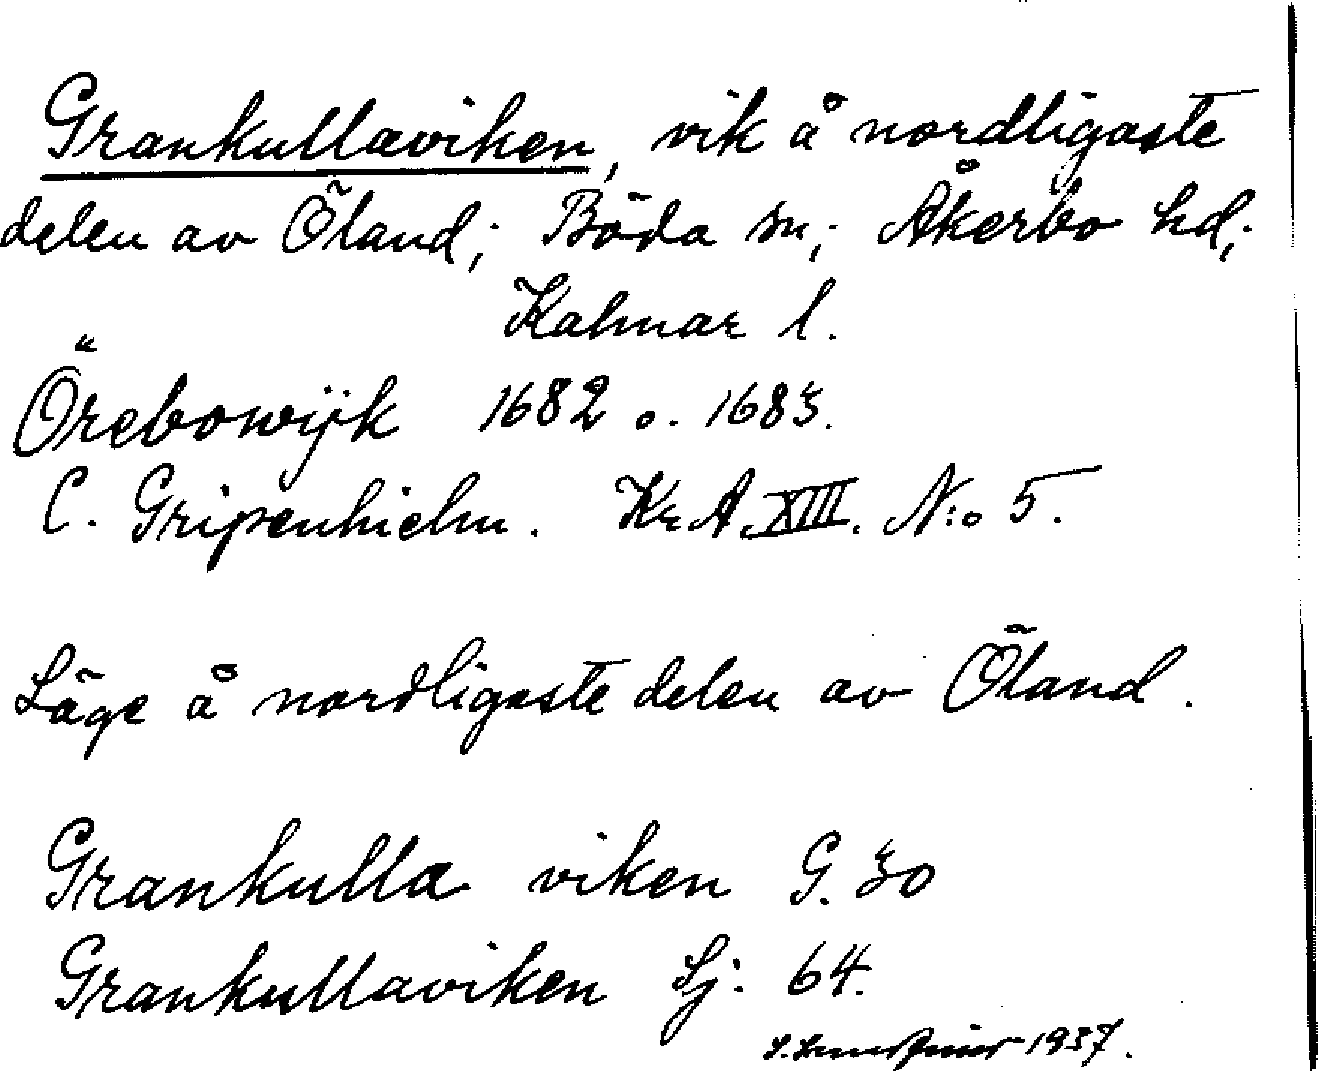 Grankullaviken, vik å nordligaste
delen av Öland; Böda sn; Åkerbo hd;
Kalmar l.
Örebowijk 1682 o. 1683.
C. Gripenhielm. Kr A. XIII. N:o 5.
Läge å nordligaste delen av Öland.
Grankulla viken G. 30
Grankullaviken Sj: 64.
1937.